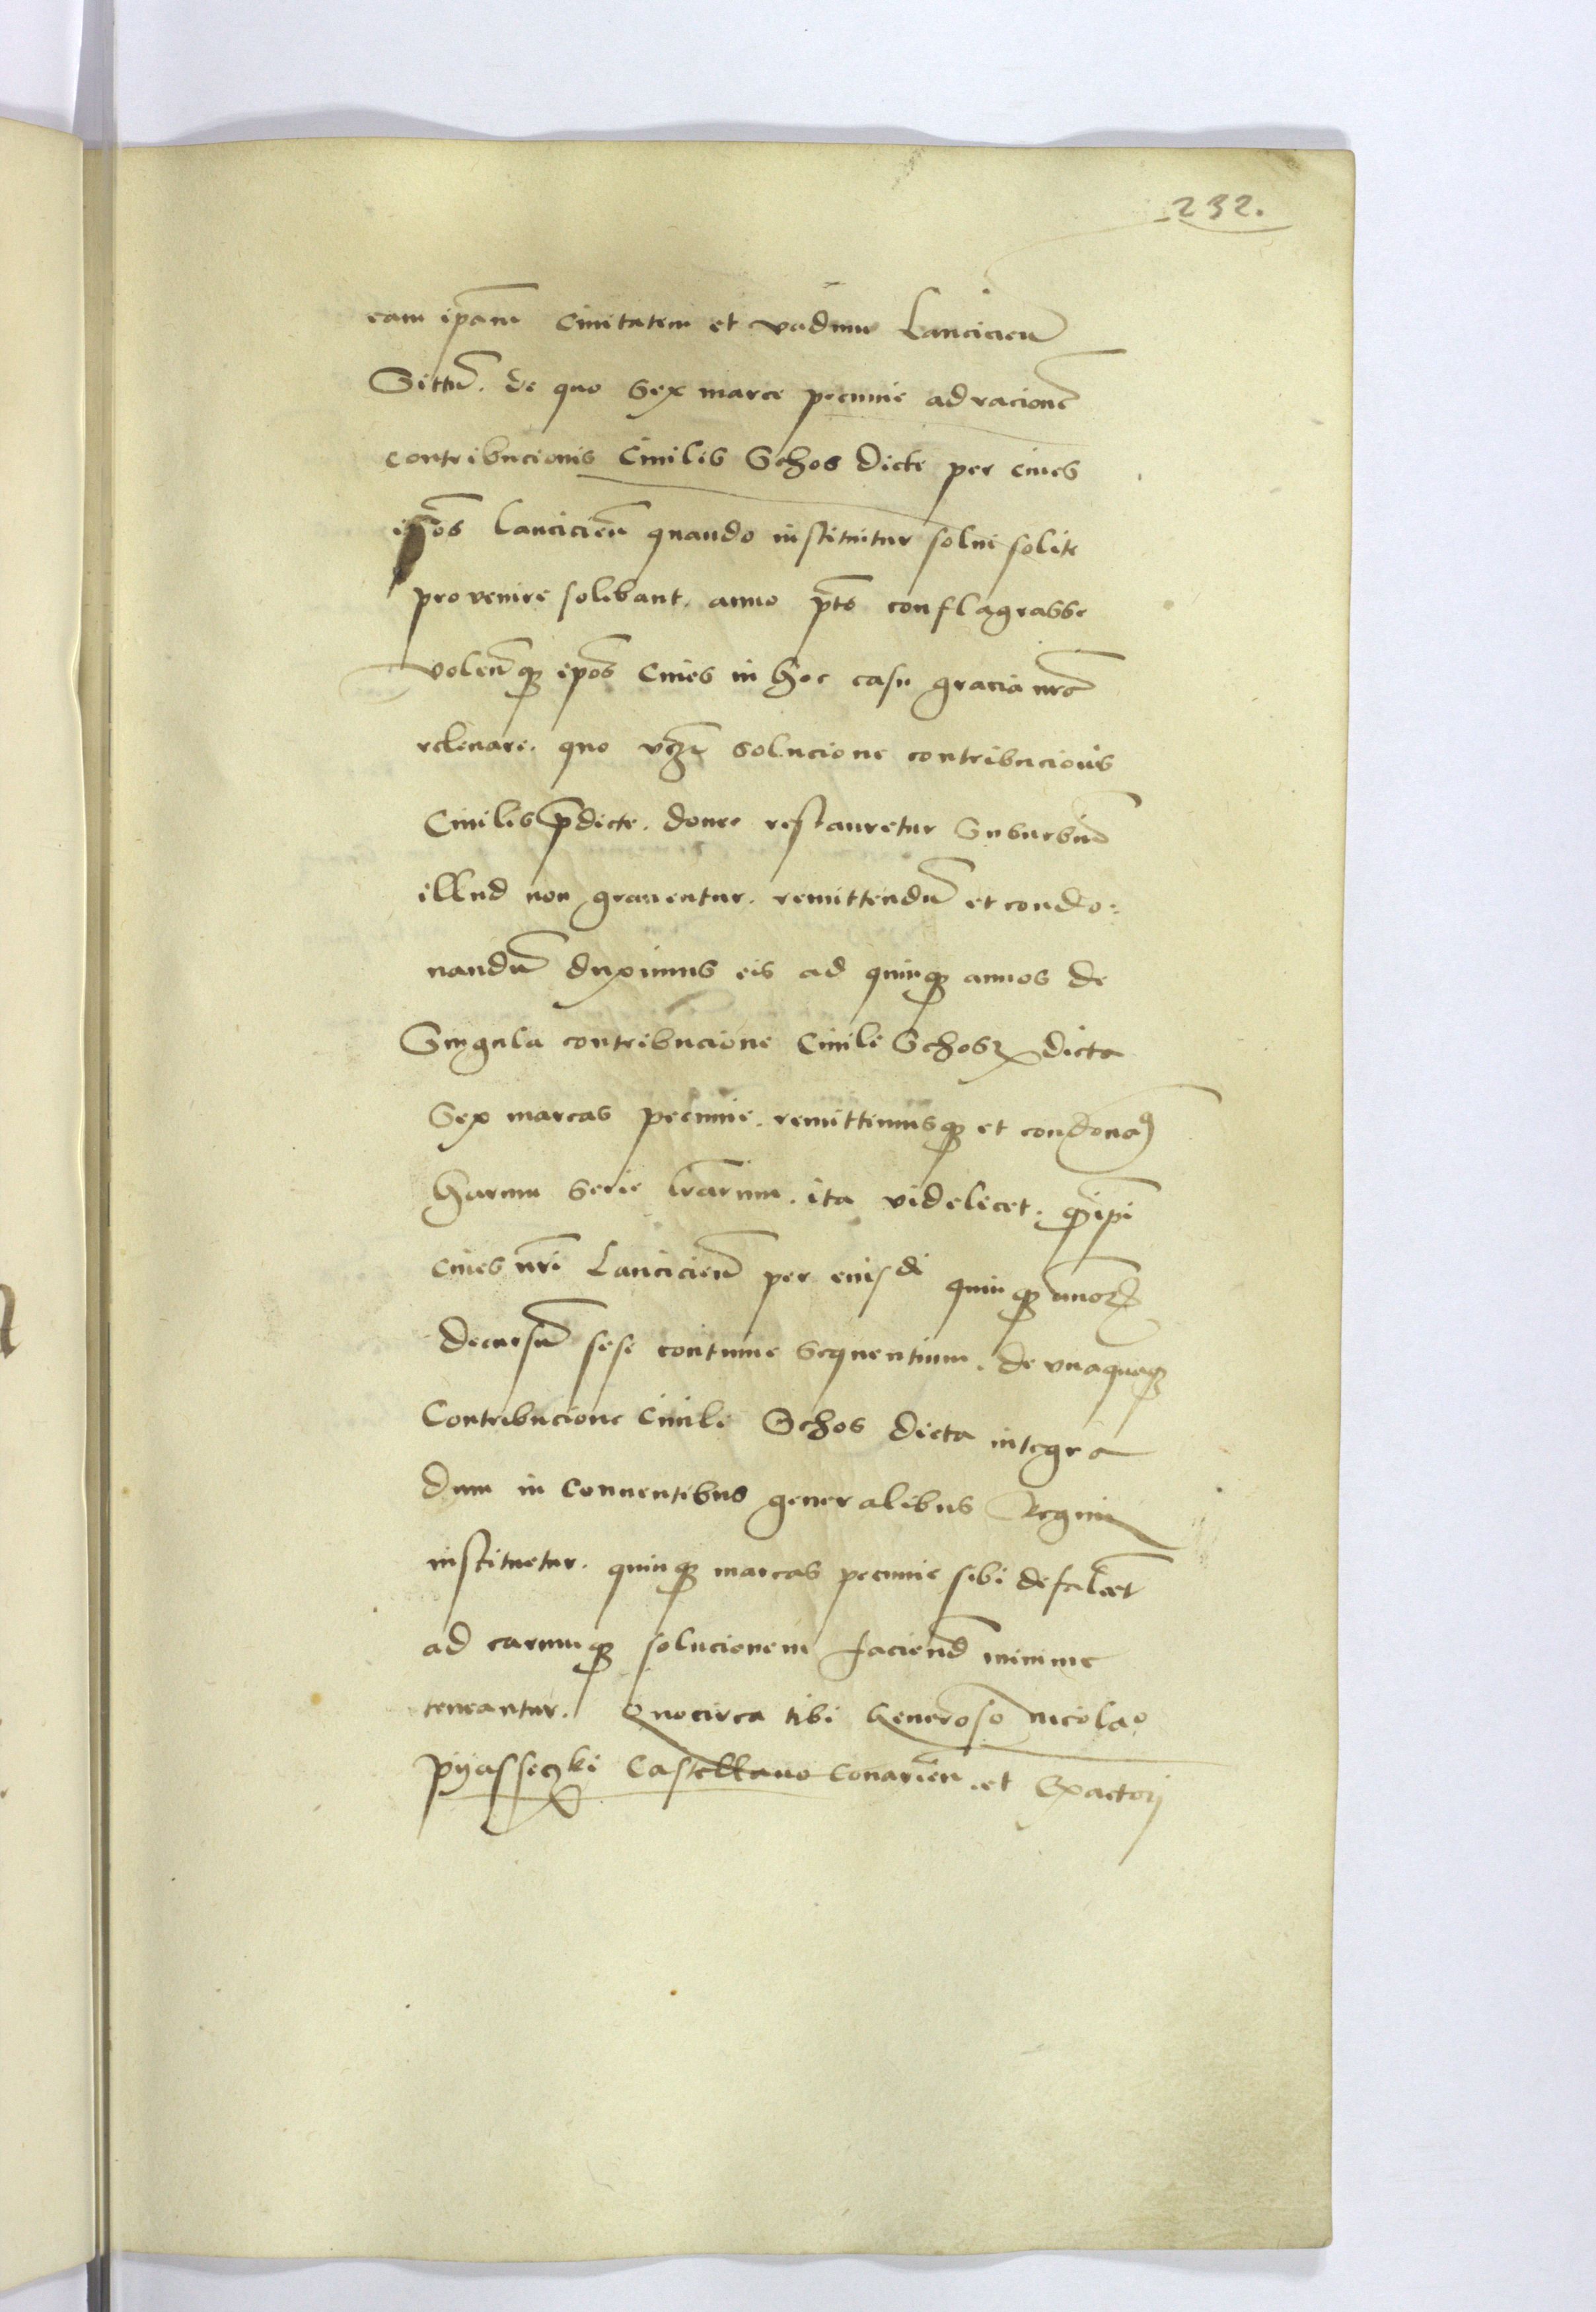 232.
eam ipam Ciuitatem et vadum Lancicien
Situm. de quo Sex marce pecunie ad racione
contribucionis Ciuilis Schos dicte per ciues
ipos Lancicien quando instituitur solui solite
prouenire solebant. anno pnte conflagrasse
volen q ipos Ciues in hoc casu gracia nra
releuare. quo vcz solucione contribucionis
Ciuilis pdicte. donec restauretur Suburbiu
illud non grauentur. remittendu et condo:
nandu duximus eis ad quinq annos de
Singula contribucione Ciuili Schosz dicta
Sex marcas pecunie. remittimusq et condona
harum Serie lrarum. ita videlicet. q ipi
ciues nri Lancicien per eiusdi quinq annor
decursu sese continue Sequentium. de vnaquaq
Contribucione Ciuili Schos dicta integra
dum in Conuentibus generalibus Regni
instituetur. quinq marcas pecunie sibi defalcet
ad earumq solucionem faciend minime
teneantur. Quocirca tibi Generoso Nicolao
Pyasseczki Castellano Conarien. et Exactori